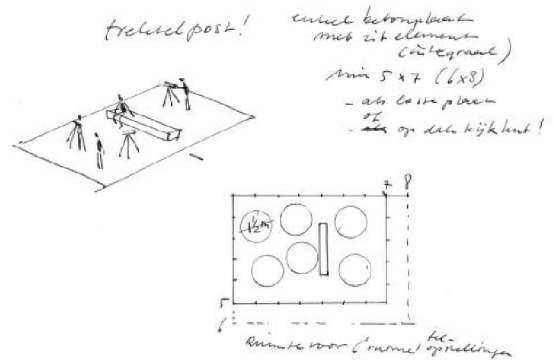 trektelpost!
enkel betonplaat
met zitelement
(integraal)
min 5 x 7 (6x8)
- als losse plaat
of
- op dak kijkhut!
7 8
1½m
5
6
Ruimte voor 6 (ruime) tel-
opstellingen